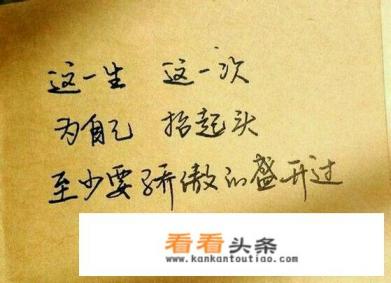 这一生 这一次
为自己 抬起头
至少要骄傲的盛开过
看看头条
www.kankantoutiao.com